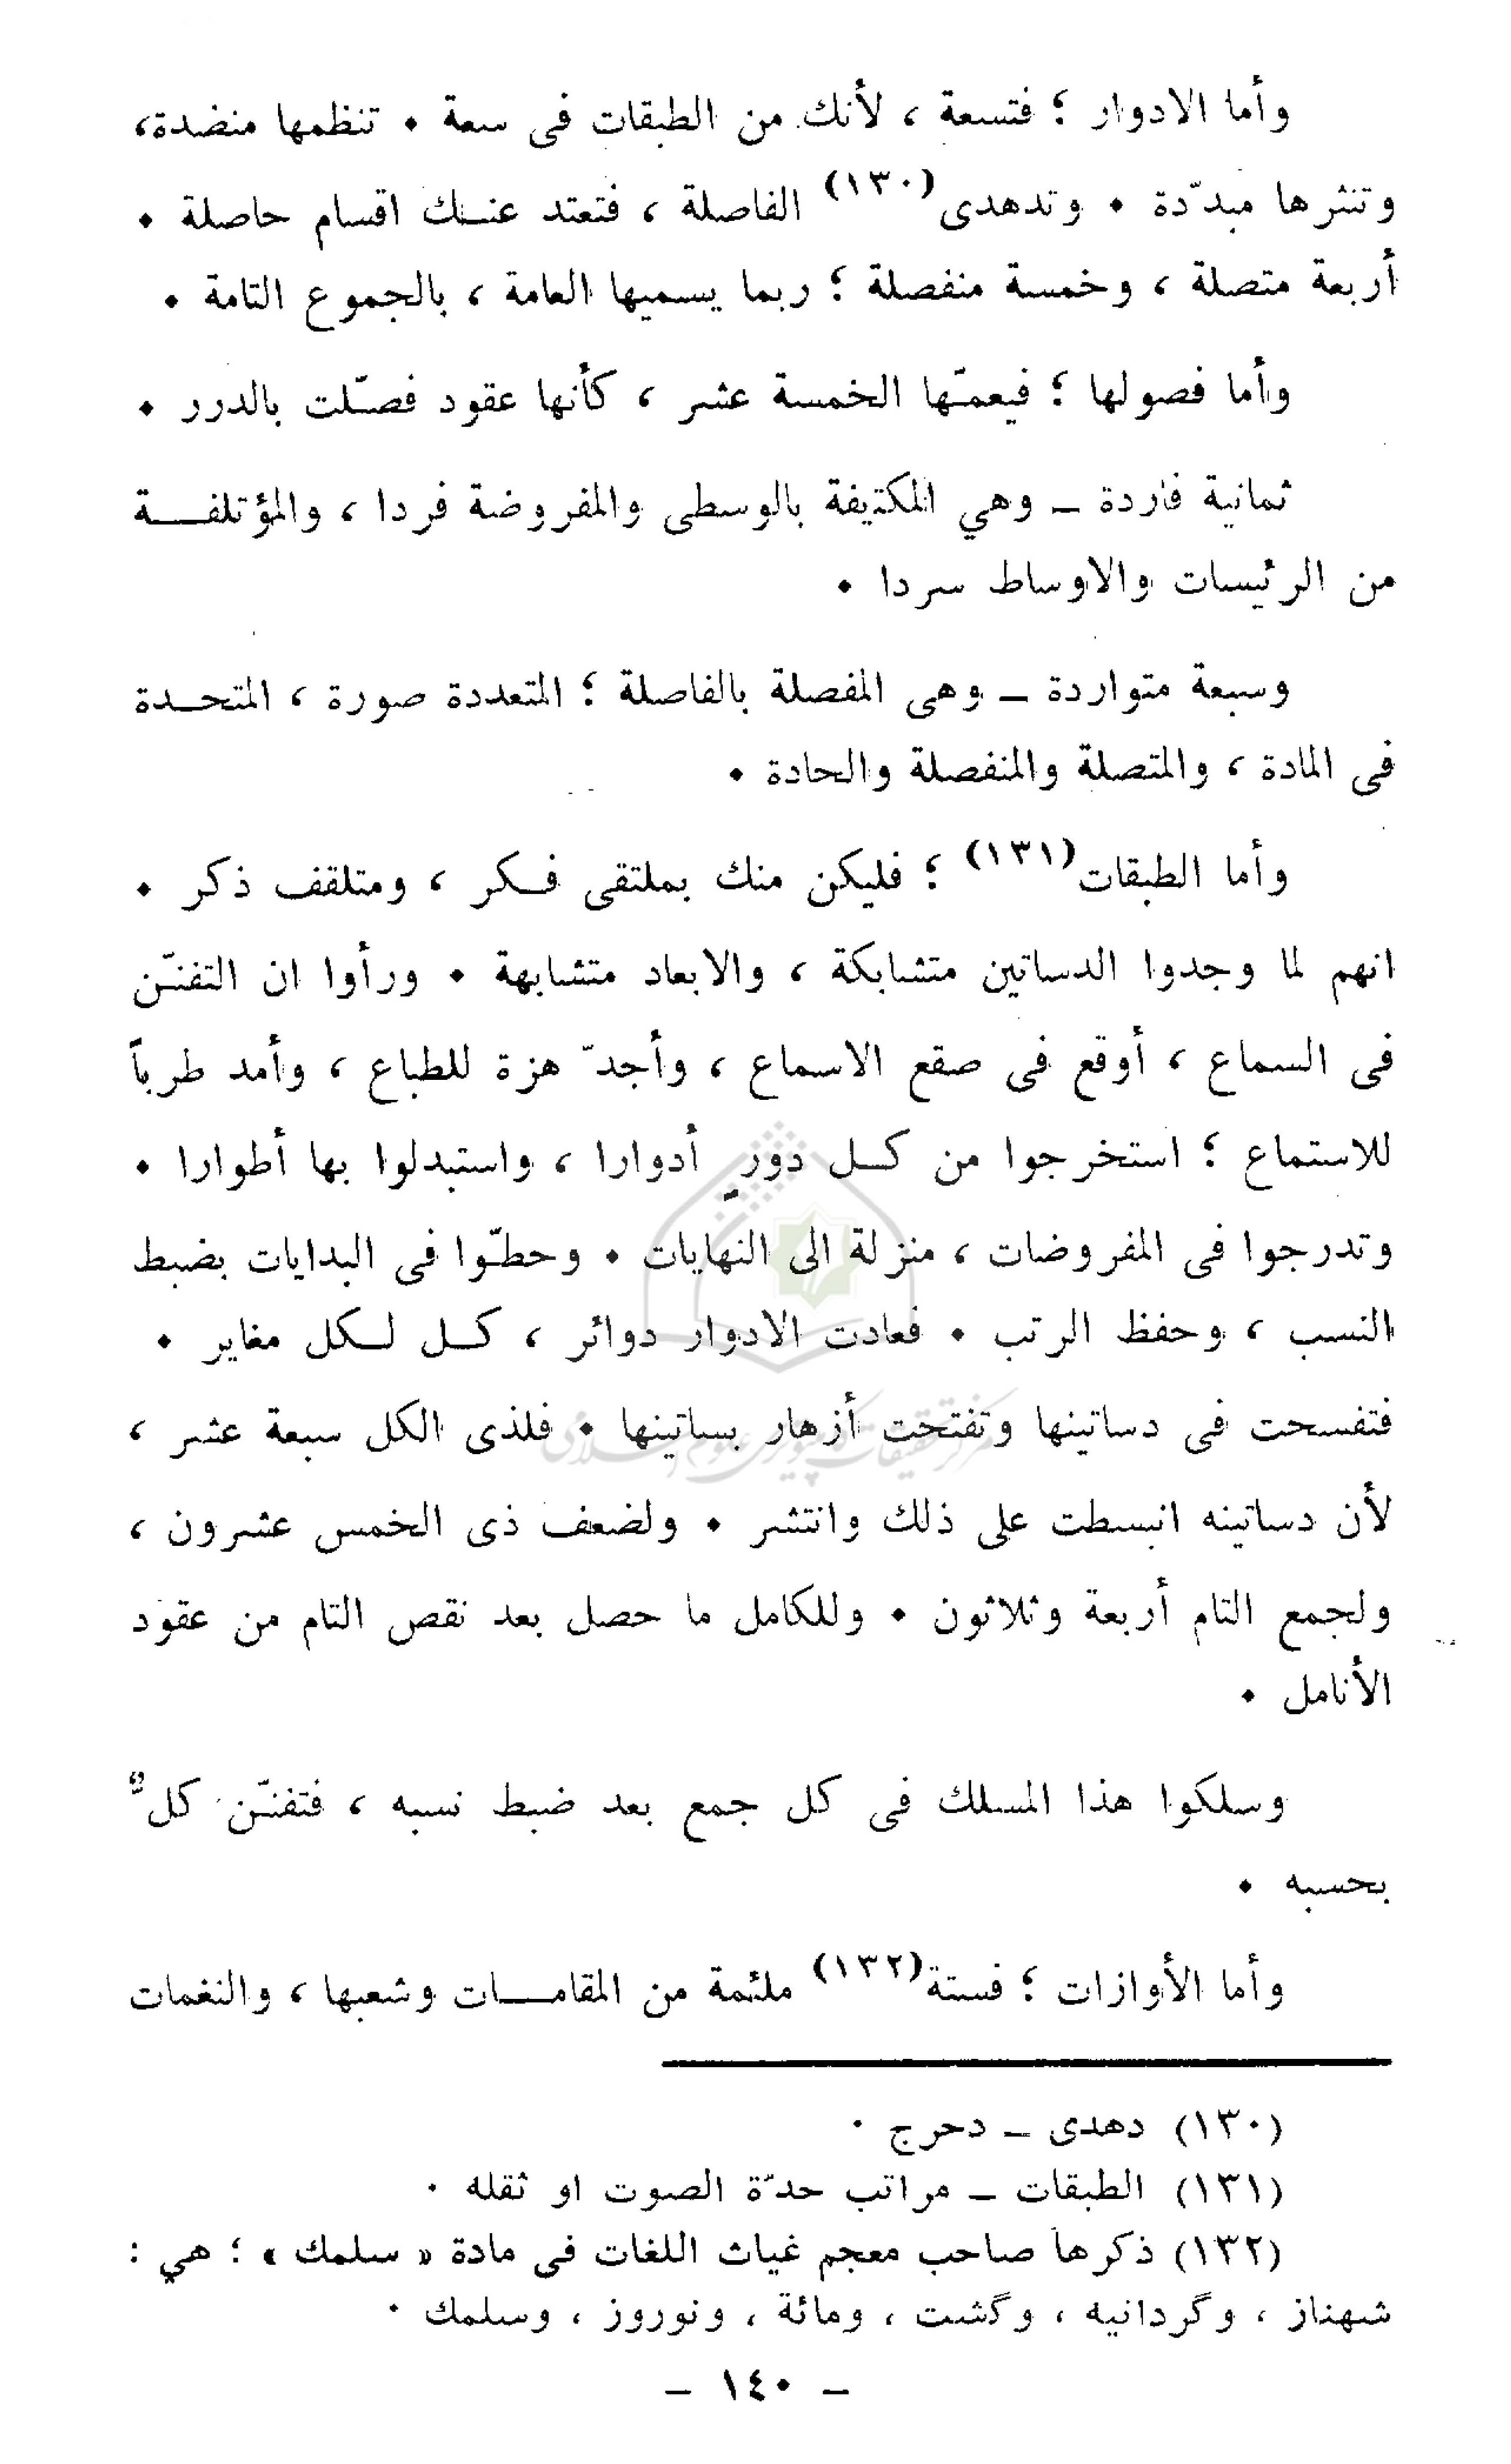 وأما الادوار ؛ فتسعة ، لأنك من الطبقات فى سعة • تنظمها منضدة،
وتنثرها مبدّدة • وتدهدى(١٣٠) الفاصلة ، فتعتد عنــك اقسام حاصلة •
أربعة متصلة ، وخمسة منفصلة ؛ ربما يسميها العامة ، بالجموع التامة •
وأما فصولها ؛ فيعمّها الخمسة عشر ، كأنها عقود فصّلت بالدرر •
ثمانية فاردة ــ وهي المكتيفة بالوسطى والمفروضة فردا ، والمؤتلفــة
من الرئيسات والاوساط سردا •
وسبعة متواردة ــ وهى المفصلة بالفاصلة ؛ المتعددة صورة ، المتحــدة
فى المادة ، والمتصلة والمنفصلة والحادة •
وأما الطبقات(١٣١) ؛ فليكن منك بملتقى فــكر ، ومتلقف ذكر •
انهم لما وجدوا الدساتين متشابكة ، والابعاد متشابهة • ورأوا ان التفنّن
فى السماع ، أوقع فى صقع الاسماع ، وأجدّ هزة للطباع ، وأمد طرباً
للاستماع ؛ استخرجوا من كــل دورٍ أدوارا ، واستبدلوا بها أطوارا •
وتدرجوا فى المفروضات ، منزلة الى النهايات • وحطّوا فى البدايات بضبط
النسب ، وحفظ الرتب • فعادت الادوار دوائر ، كــل لــكل مغاير •
فتفسحت فى دساتينها وتفتحت أزهار بساتينها • فلذى الكل سبعة عشر ،
لأن دساتينه انبسطت على ذلك وانتشر • ولضعف ذى الخمس عشرون ،
ولجمع التام أربعة وثلاثون • وللكامل ما حصل بعد نقص التام من عقود
الأنامل •
وسلكوا هذا المسلك فى كل جمع بعد ضبط نسبه ، فتفنّن كلٌّ
بحسبه •
وأما الأوازات ؛ فستة(١٣٢) ملئمة من المقامــات وشعبها ، والنغمات
(١٣٠) دهدى ــ دحرج •
(١٣١) الطبقات ــ مراتب حدّة الصوت او ثقله •
(١٣٢) ذكرها صاحب معجم غياث اللغات فى مادة « سلمك » ؛ هي :
شهناز ، وگردانيه ، وگشت ، ومائة ، ونوروز ، وسلمك •
ــ ١٤٠ ــ